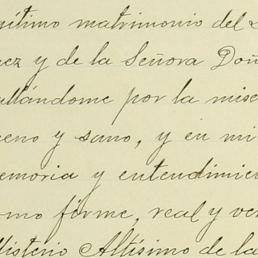 gítimo matrimonio del S
nez y de la Señora Doñ
allándome por la mise
reno y sano, y en mi
emoria y entendimie
omo firme, real y ver
Misterio Altísimo de la